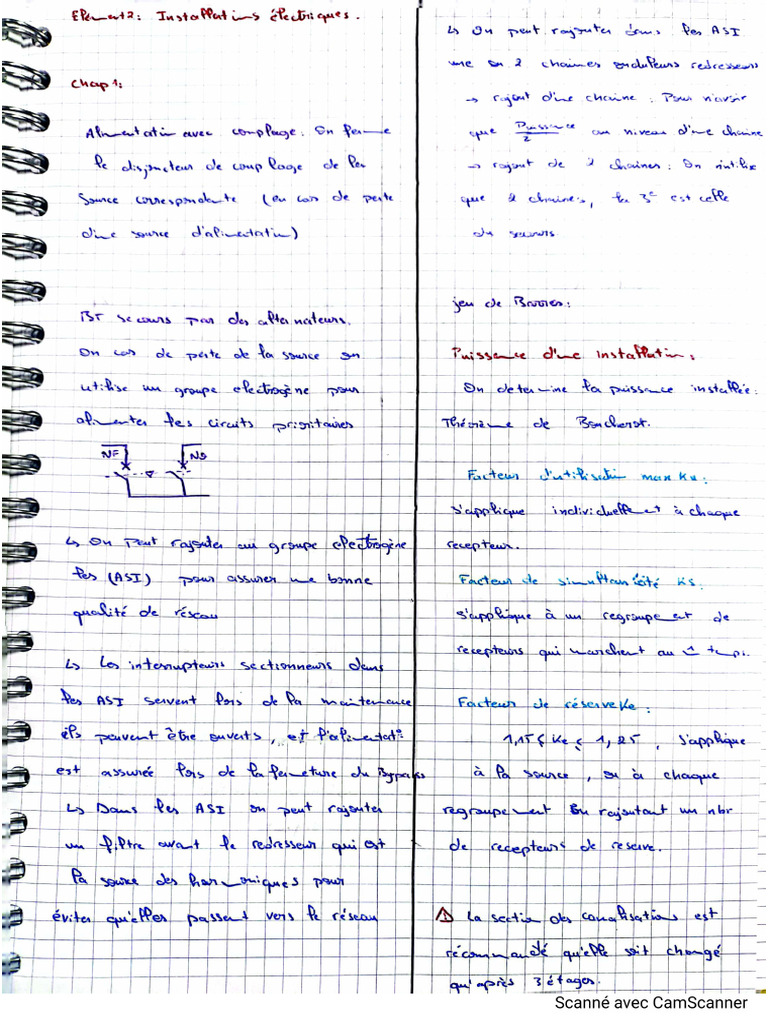 Element 2: Installations électriques.
Chap 1:
Alimentation avec couplage: On ferme
le disjoncteur de couplage de la
Source correspondante (en cas de perte
d'une source d'alimentation)
BT secours par des alternateurs.
En cas de perte de la source on
utilise un groupe electrogène pour
alimenter les circuits prioritaires
NF
↳ On peut rajouter au groupe electrogène
les (ASI) pour assurer une bonne
qualité de réseau
↳ Les interrupteurs sectionneurs dans
les ASI servent lors de la maintenance
ils peuvent être ouverts, et l'alimentat°
est assurée lors de la fermeture du Bypass
↳ Dans les ASI on peut rajouter
un filtre avant le redresseur qui est
la source des harmoniques pour
éviter qu'elles passent vers le réseau
↳ On peut rajouter dans les ASI
une ou 2 chaines onduleurs redresseurs
→ rajout d'une chaine: Pour n'avoir
que Puissance/2 au niveau d'une chaine
→ rajout de 2 chaines: On n'utilise
que 2 chaines, la 3e est celle
du secours
jeu de Barres:
Puissance d'une installation:
On determine la puissance installée:
Théorème de Boucherot.
Facteur d'utilisation max Ku:
s'applique individuellement à chaque
recepteur.
Facteur de simultanéité Ks:
s'applique à un regroupement de
recepteurs qui marchent au m̂ temps.
Facteur de réserve Ke:
1,15 ≤ Ke ≤ 1,25, s'applique
à la source, ou à chaque
regroupement En rajoutant un nbr
de recepteurs de reserve.
⚠ La section des canalisations est
récommandé qu'elle soit changé
qu'après 3 étages.
Scanné avec CamScanner